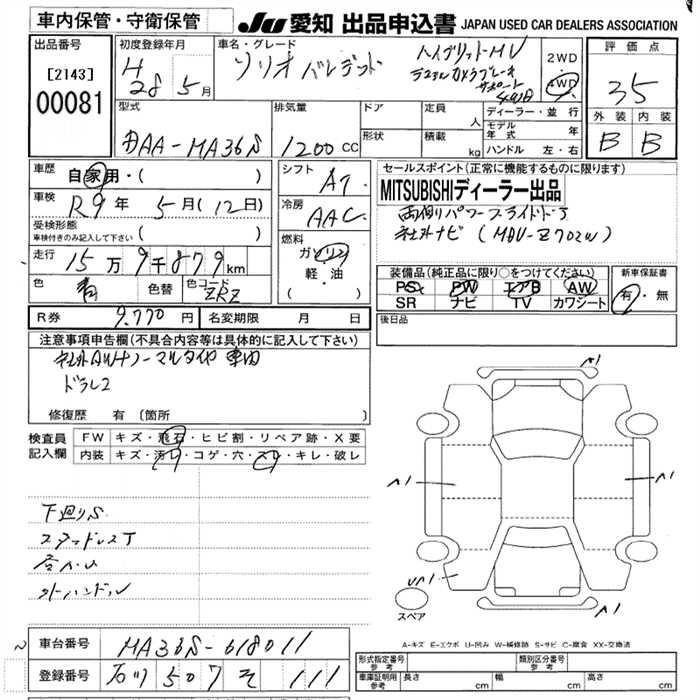 車内保管・守衛保管
JU 愛知 出品申込書 JAPAN USED CAR DEALERS ASSOCIATION
出品番号
[2143]
00081
初度登録年月
H 28年 5月
車名・グレード
ソリオ バンデット
ハイブリットMV
デュアルカメラブレーキ
サポート
2WD
4WD
評価点
3.5
外装 内装
B B
型式
DAA-MA36S
排気量
1200 CC
ドア
形状
定員 人
積載 kg
ディーラー・並行
モデル年式 年
ハンドル 左・右
車歴
自家用・( )
車検
R9年 5月(12日)
受検形態
車検付きのみ記入して下さい( )
走行
15万9千879km
色
青
色替
色コード
ZRZ
シフト
AT
冷房
AAC
燃料
ガソリン
軽・油
・( )
セールスポイント(正常に機能するものに限ります)
MITSUBISHIディーラー出品
両側パワースライドドア
社外ナビ(MDV-Z702W)
装備品(純正品に限り○をつけてください)
PS PW エアB AW
SR ナビ TV カワシート
新車保証書
有・無
R券 9,770円
名変期限 月 日
後日品
注意事項申告欄(不具合内容等は具体的に記入して下さい)
社外AW+ノーマルタイヤ 車内
ドラレコ
修復歴 有 [箇所 ]
検査員記入欄
FW キズ・飛石・ヒビ割・リペア跡・X要
内装 キズ・汚れ・コゲ・穴・スレ・キレ・破レ
下廻りS
スタッドレスT
外ハンドル
A1
A1
A1
UA1
スペア
A-キズ E-エクボ U-凹み W-補修跡 S-サビ C-腐食 XX-交換済
車台番号
MA36S-618011
登録番号
石川 507 そ 111
形式指定番号
参考
類別区分番号
参考
車庫証明用
参考
長さ cm
幅 cm
高さ cm